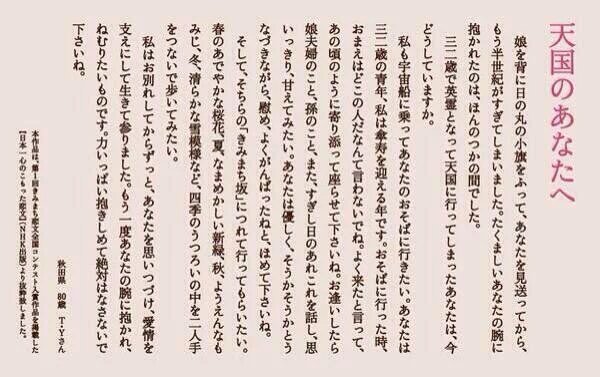 天国のあなたへ
娘を背に日の丸の小旗をふって、あなたを見送ってから、
もう半世紀がすぎてしまいました。たくましいあなたの腕に
抱かれたのは、ほんのつかの間でした。
三二歳で英霊となって天国に行ってしまったあなたは、今
どうしていますか。
私も宇宙船に乗ってあなたのおそばに行きたい。あなたは
三二歳の青年、私は傘寿を迎える年です。おそばに行った時、
おまえはどこの人だなんて言わないでね。よく来たと言って、
あの頃のように寄り添って座らせて下さいね。お逢いしたら
娘夫婦のこと、孫のこと、また、すぎし日のあれこれを話し、思
いっきり、甘えてみたい。あなたは優しく、そうかそうかとう
なづきながら、慰め、よくがんばったねと、ほめて下さいね。
そして、そちらの「きみまち坂」につれて行ってもらいたい。
春のあでやかな桜花、夏、なまめかしい新緑、秋、ようえんなも
みじ、冬、清らかな雪模様など、四季のうつろいの中を二人手
をつないで歩いてみたい。
私はお別れしてからずっと、あなたを思いつづけ、愛情を
支えにして生きて参りました。もう一度あなたの腕に抱かれ、
ねむりたいものです。力いっぱい抱きしめて絶対はなさないで
下さいね。
秋田県　80歳　T・Yさん
本作品は、第1回きみまち恋文全国コンテスト入賞作品を掲載した
【日本一心のこもった恋文】（NHK出版）より抜粋致しました。